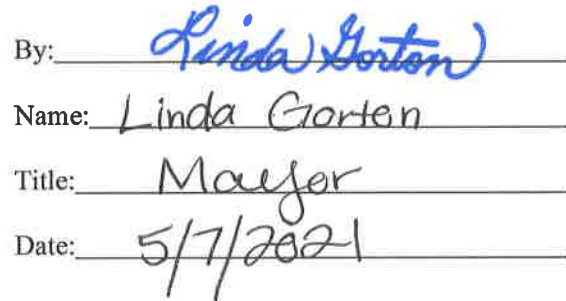 By: Linda Gorton
Name: Linda Gorten
Title: Mayor
Date: 5/7/2021